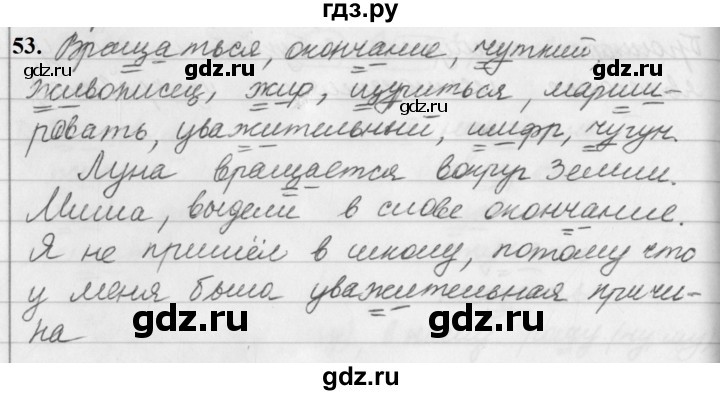 гдз.ру
53. Вращаться, окончание, чуткий,
живописец, жир, щуриться, марши-
ровать, уважительный, шифр, чугун.
Луна вращается вокруг Земли.
Миша, выдели в слове окончание.
Я не пришёл в школу, потому что
у меня была уважительная причи-
на
gdz.ru gdz.ru gdz.ru
gdz.ru gdz.ru gdz.ru
gdz.ru gdz.ru gdz.ru
гдз.ру